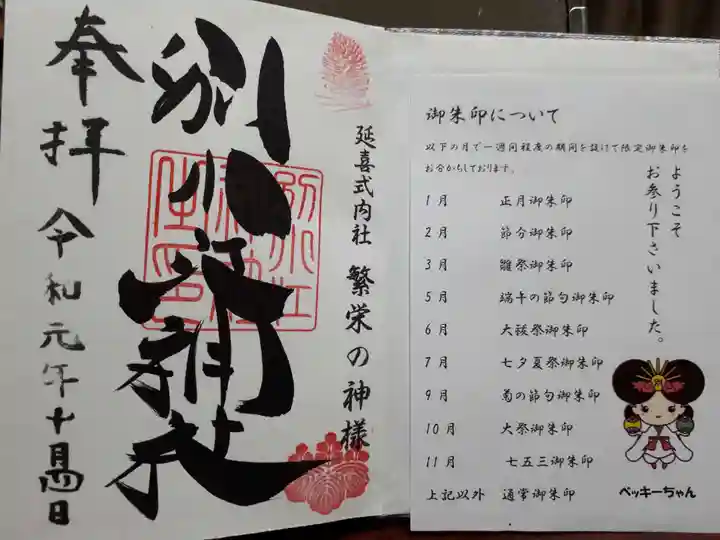 延喜式内社 繁栄の神様
別小江神社
奉拝 令和元年十月四日
御朱印について
以下の月で一週間程度の期間を設けて限定御朱印を
お分かちしております。
1月 正月御朱印
2月 節分御朱印
3月 雛祭御朱印
5月 端午の節句御朱印
6月 大祓祭御朱印
7月 七夕夏祭御朱印
9月 菊の節句御朱印
10月 大祭御朱印
11月 七五三御朱印
上記以外 通常御朱印
ようこそ
お参り下さいました。
ベッキーちゃん